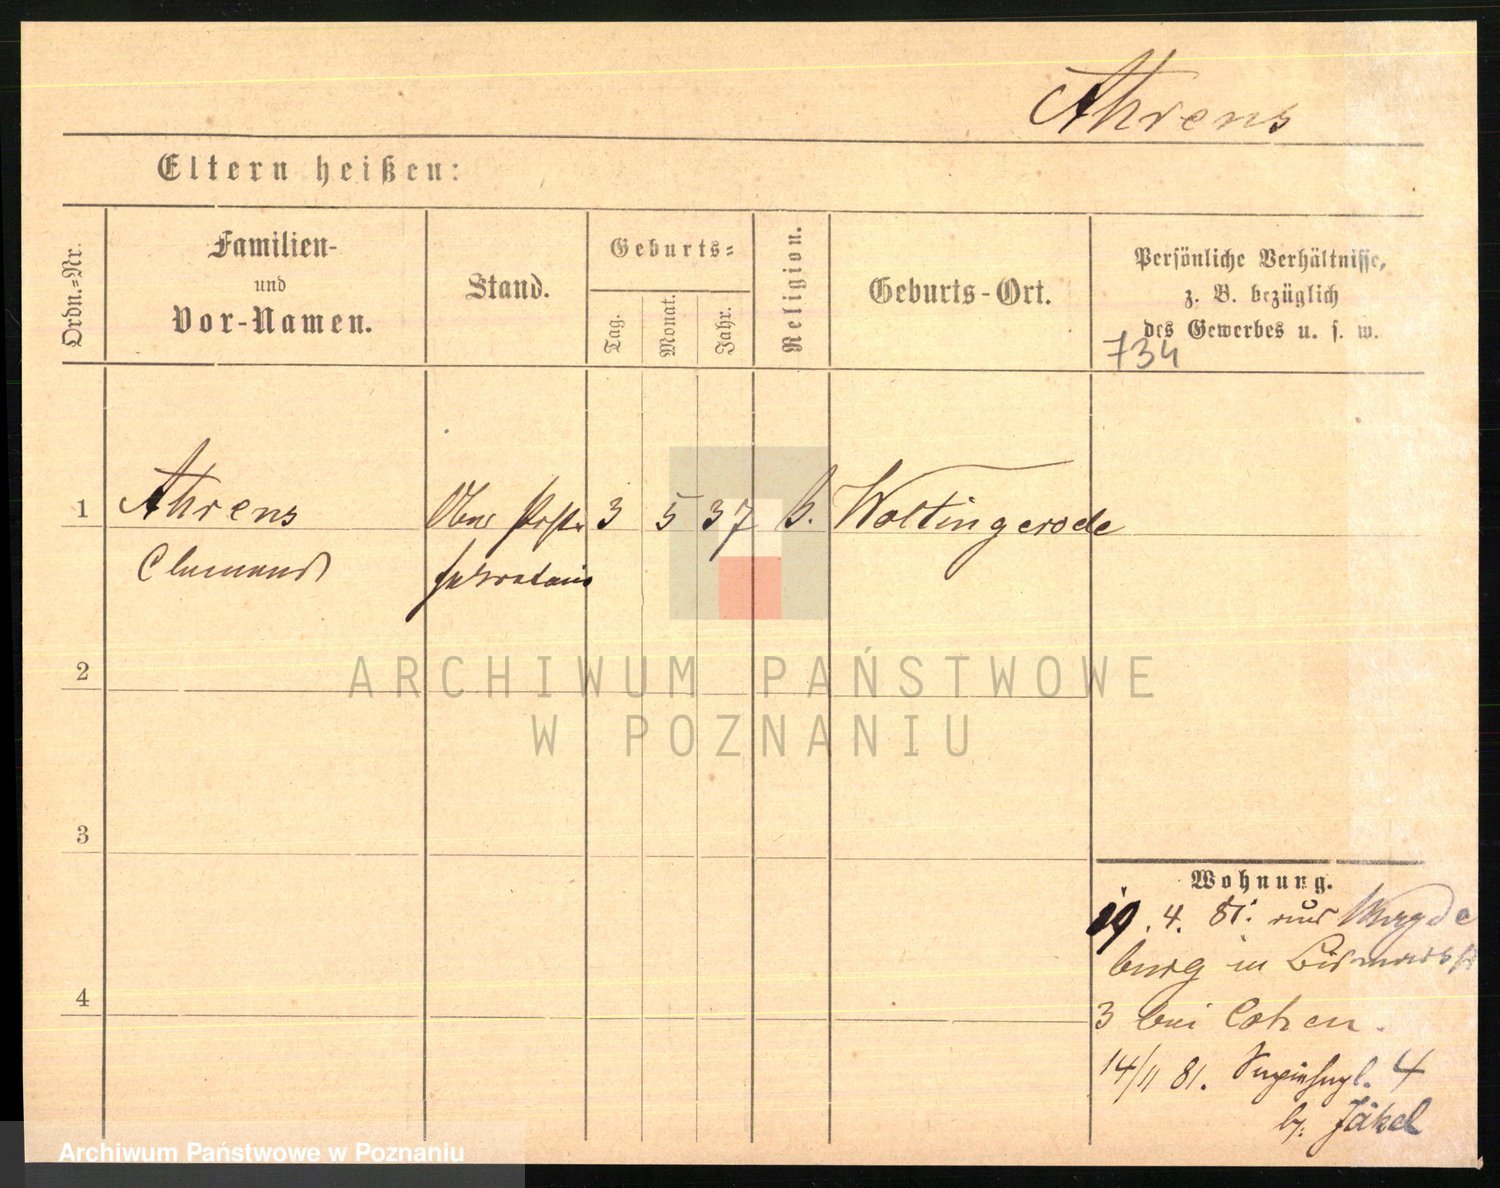 Ahrens
Eltern heißen:
Ordn.=Nr.
Familien-
und
Vor-Namen.
Stand.
Geburts=
Tag.
Monat.
Jahr.
Religion.
Geburts-Ort.
Persönliche Verhältnisse,
z. B. bezüglich
des Gewerbes u. s. w.
734
1 Ahrens Ober Post 3 5 37 k. Woltingerode
Clemens Sekretair
2
ARCHIWUM PAŃSTWOWE
W POZNANIU
3
Wohnung.
19. 4. 81. aus Magde
burg in Bismarckst
4
3 bei Cohen.
14/11 81. 4
b. Jäkel
Archiwum Państwowe w Poznaniu